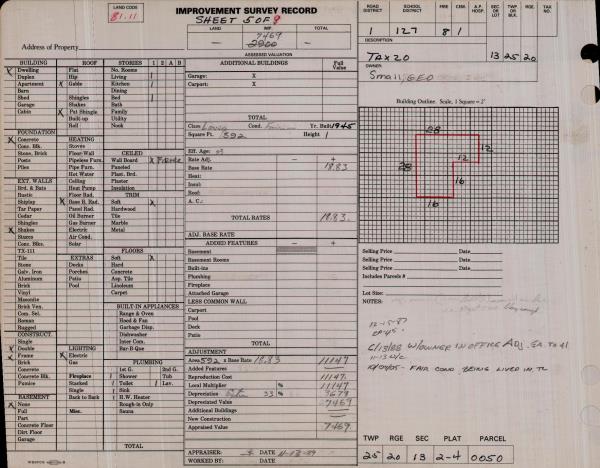 LAND CODE
81.11
IMPROVEMENT SURVEY RECORD
SHEET 5 OF 9
LAND IMP. TOTAL
7469
2200
ASSESSED VALUATION
Address of Property
ROAD DISTRICT SCHOOL DISTRICT FIRE CEM. A.P. HOSP. SEC. OR LOT TWP. OR BLK. RGE. TAX NO.
1 127 8 1
DESCRIPTION
TAX 20 13 25 20
OWNER
Small, GEO
BUILDING ROOF STORIES 1 2 A B
Dwelling Flat No. Rooms
Duplex Hip Living
Apartment Gable Kitchen
Barn Dining
Shed Shingles Bed
Garage Shakes Bath
Cabin Pat Shingle Family
Built-up Utility
Roll Nook
FOUNDATION
Concrete HEATING
Conc. Blk. Stoves CEILED
Stone, Brick Floor-Wall
Posts Pipeless Furn. Wall Board
Piles Pipe Furn. Paneled
Hot Water Plast. Brd.
EXT. WALLS Ceiling Plaster
Brd. & Bats Heat Pump Insulation
Rustic Floor Rad. TRIM
Shiplap Base B. Rad. Soft
Tar Paper Panel Rad. Hardwood
Cedar Oil Burner Tile
Shingles Gas Burner Marble
Shakes Electric Metal
Stucco Air Cond.
Conc. Blks. Solar
TX-111 FLOORS
Tile EXTRAS Soft
Stone Decks Hard
Galv. Iron Porches Concrete
Aluminum Patio Asp. Tile
Brick Pool Linoleum
Vinyl Carpet
Masonite
Brick Ven. BUILT-IN APPLIANCES
Com. Sel. Range & Oven
Roman Hood & Fan
Rugged Garbage Disp.
CONSTRUCT. Dishwasher
Single Inter Com.
Double LIGHTING Bar-B-Que
Frame Electric
Brick Gas PLUMBING
Concrete 1st G. 2nd G.
Concrete Blk. Fireplace Shower Tub
Pumice Stacked Toilet Lav.
Single Sink
BASEMENT Back to Back H.W. Heater
None Rough-in Only
Full Misc. Sauna
Part
Concrete Floor
Dirt Floor
Garage TOTAL
ADDITIONAL BUILDINGS Full Value
Garage: X
Carport: X
TOTAL
Class Cond. Yr. Built 1945
Square Ft. 592 Height 1
Eff. Age:
Rate Adj. - +
Base Rate 18.83
Heat:
Insul:
Roof:
A. C.:
TOTAL RATES 18.83
ADJ. BASE RATE
ADDED FEATURES - +
Basement
Basement Rooms
Built-ins
Plumbing
Fireplace
Attached Garage
LESS COMMON WALL
Carport
Pool
Deck
Patio
TOTAL
ADJUSTMENT
Area 592 x Base Rate 18.83 11147
Added Features
Reproduction Cost 11147
Local Multiplier 11147
Depreciation 33 % 3679
Depreciated Value 7469
Additional Buildings
New Construction
Appraised Value 7469
APPRAISER: DATE
WORKED BY: DATE
Building Outline. Scale, 1 Square = 2'
28
12
12
28
16
16
Selling Price Date
Selling Price Date
Selling Price Date
Includes Parcels #
Lot Size:
NOTES:
12-15-87
6/13/88 W/OWNER IN OFFICE ADJ.
FAIR COND BEING LIVED IN
TWP RGE SEC PLAT PARCEL
25 20 13 2-4 0050